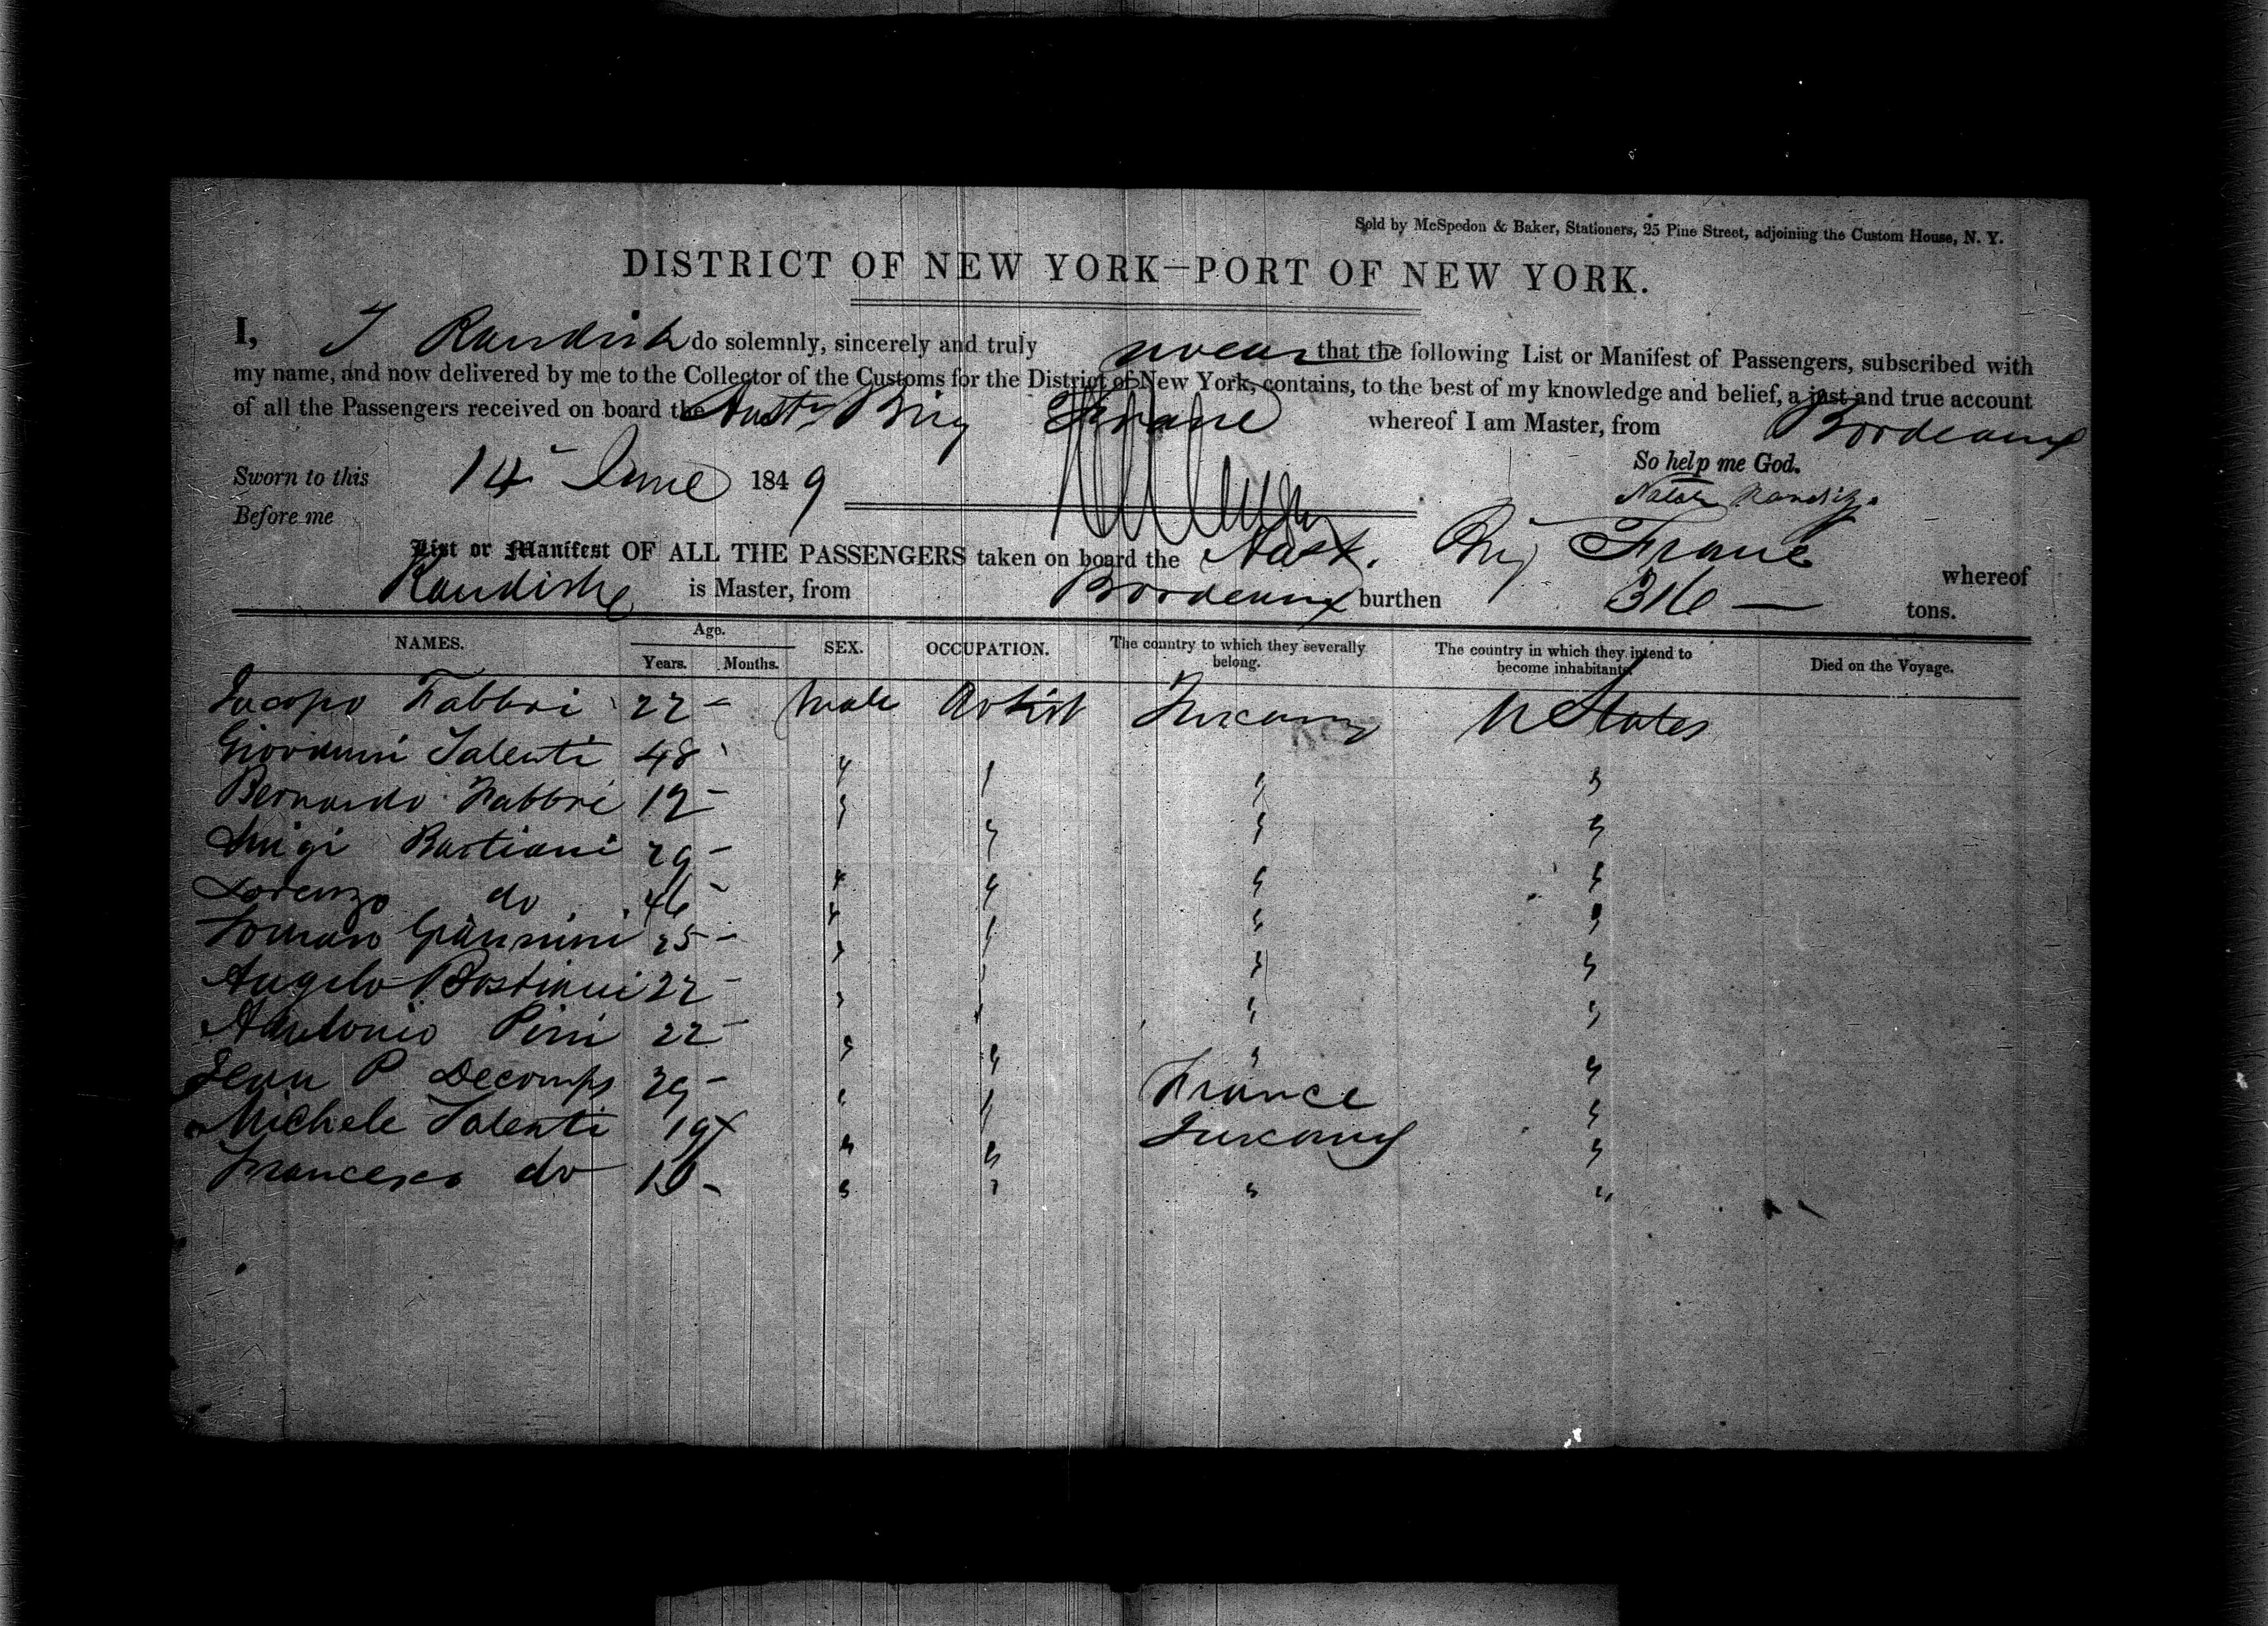 Sold by McSpedon & Baker, Stationers, 25 Pine Street, adjoining the Custom House, N. Y.
DISTRICT OF NEW YORK—PORT OF NEW YORK.
I, do solemnly, sincerely and truly swear that the following List or Manifest of Passengers, subscribed with
my name, and now delivered by me to the Collector of the Customs for the District of New York, contains, to the best of my knowledge and belief, a just and true account
of all the Passengers received on board the Aust. Brig whereof I am Master, from Bordeaux
So help me God.
Sworn to this 14 June 1849
Before me
List or Manifest OF ALL THE PASSENGERS taken on board the Aust. Brig whereof
is Master, from Bordeaux burthen 316 — tons.
NAMES. Age. Years. Months. SEX. OCCUPATION. The country to which they severally belong. The country in which they intend to become inhabitants. Died on the Voyage.
Jacopo Fabbri 22 - Male Artist Tuscany U States
Giovanni Talenti 48 " " " "
Bernardo Fabbri 12 - " " " "
Luigi Bastiani 29 - " " " "
Lorenzo do 46 - " " " "
Tomaso Giannini 25 - " " " "
Angelo Bastiani 22 - " " " "
Antonio Pini 22 - " " " "
Jean P Decomps 29 - " " France "
Michele Talenti 19 " " Tuscany "
Francesco do - " " " "